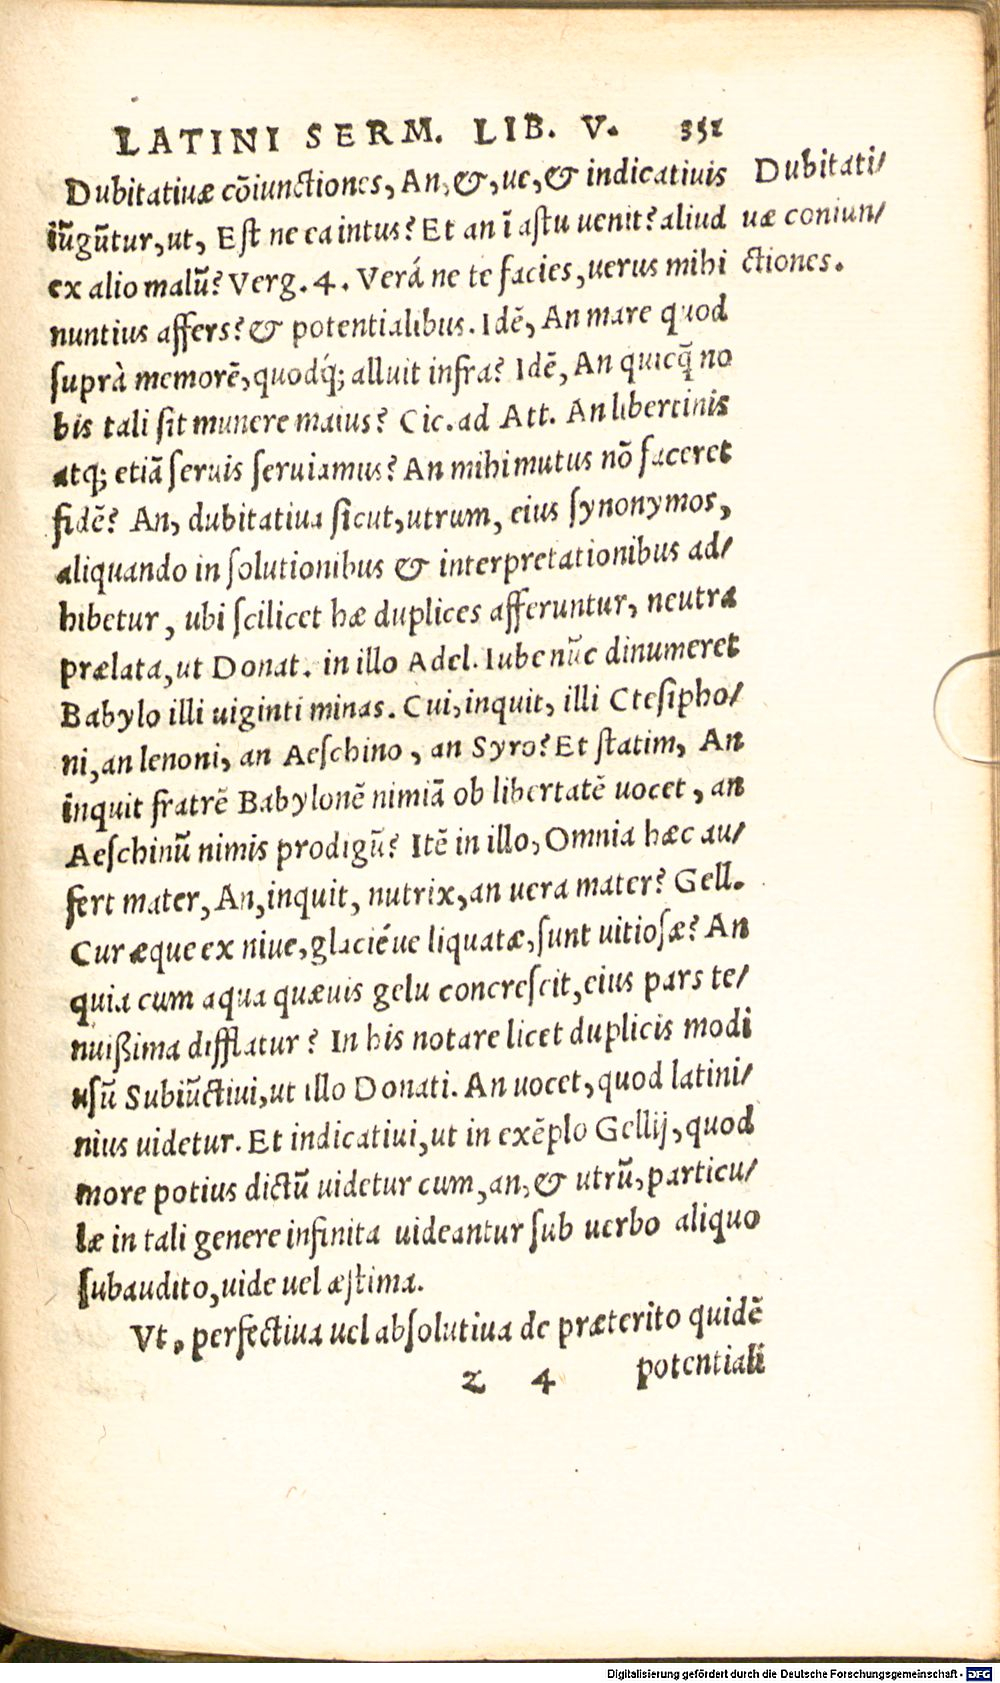 LATINI SERM. LIB. V. 351
Dubitatiuæ cōiunctiones, An, &, ue, & indicatiuis
iūgūtur, ut, Est ne ea intus? Et an ī astu uenit? aliud
ex alio malū? Verg. 4. Verá ne te facies, uerus mihi
nuntius affers? & potentialibus. Idē, An mare quod
suprà memorē, quodq́; alluit infra? Idē, An quicq̄ no
bis tali sit munere maius? Cic. ad Att. An libertinis
atq; etiā seruis seruiamus? An mihi mutus nō faceret
fidē? An, dubitatiua sicut, utrum, eius synonymos,
aliquando in solutionibus & interpretationibus ad/
hibetur, ubi scilicet hæ duplices afferuntur, neutra
prælata, ut Donat. in illo Adel. Iube nūc dinumeret
Babylo illi uiginti minas. Cui, inquit, illi Ctesipho/
ni, an lenoni, an Aeschino, an Syro? Et statim, An
inquit fratrē Babylonē nimiā ob libertatē uocet, an
Aeschinū nimis prodigū? Itē in illo, Omnia hæc au/
fert mater, An, inquit, nutrix, an uera mater? Gell.
Cur æque ex niue, glaciéue liquatæ, sunt uitiosæ? An
quia cum aqua quæuis gelu concrescit, eius pars te/
nuißima difflatur? In his notare licet duplicis modi
usū Subiūctiui, ut illo Donati. An uocet, quod latini/
nius uidetur. Et indicatiui, ut in exēplo Gellij, quod
more potius dictū uidetur cum, an, & utrū, particu/
læ in tali genere infinita uideantur sub uerbo aliquo
subaudito, uide uel æstima.
Vt, perfectiua uel absolutiua de præterito quidē
z 4 potentiali
Dubitati/
uæ coniun/
ctiones.
Digitalisierung gefördert durch die Deutsche Forschungsgemeinschaft - DFG